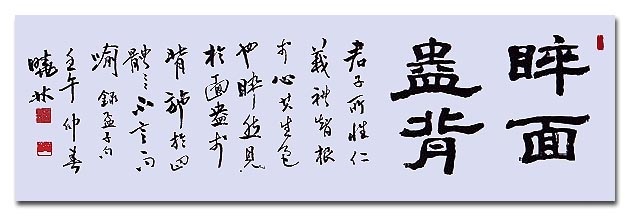 睟面
盎背
君子所性仁
義禮智根
於心其生色
也睟然見
於面盎於
背施於四
體三不言而
喻錄孟子句
壬午仲春
曉林